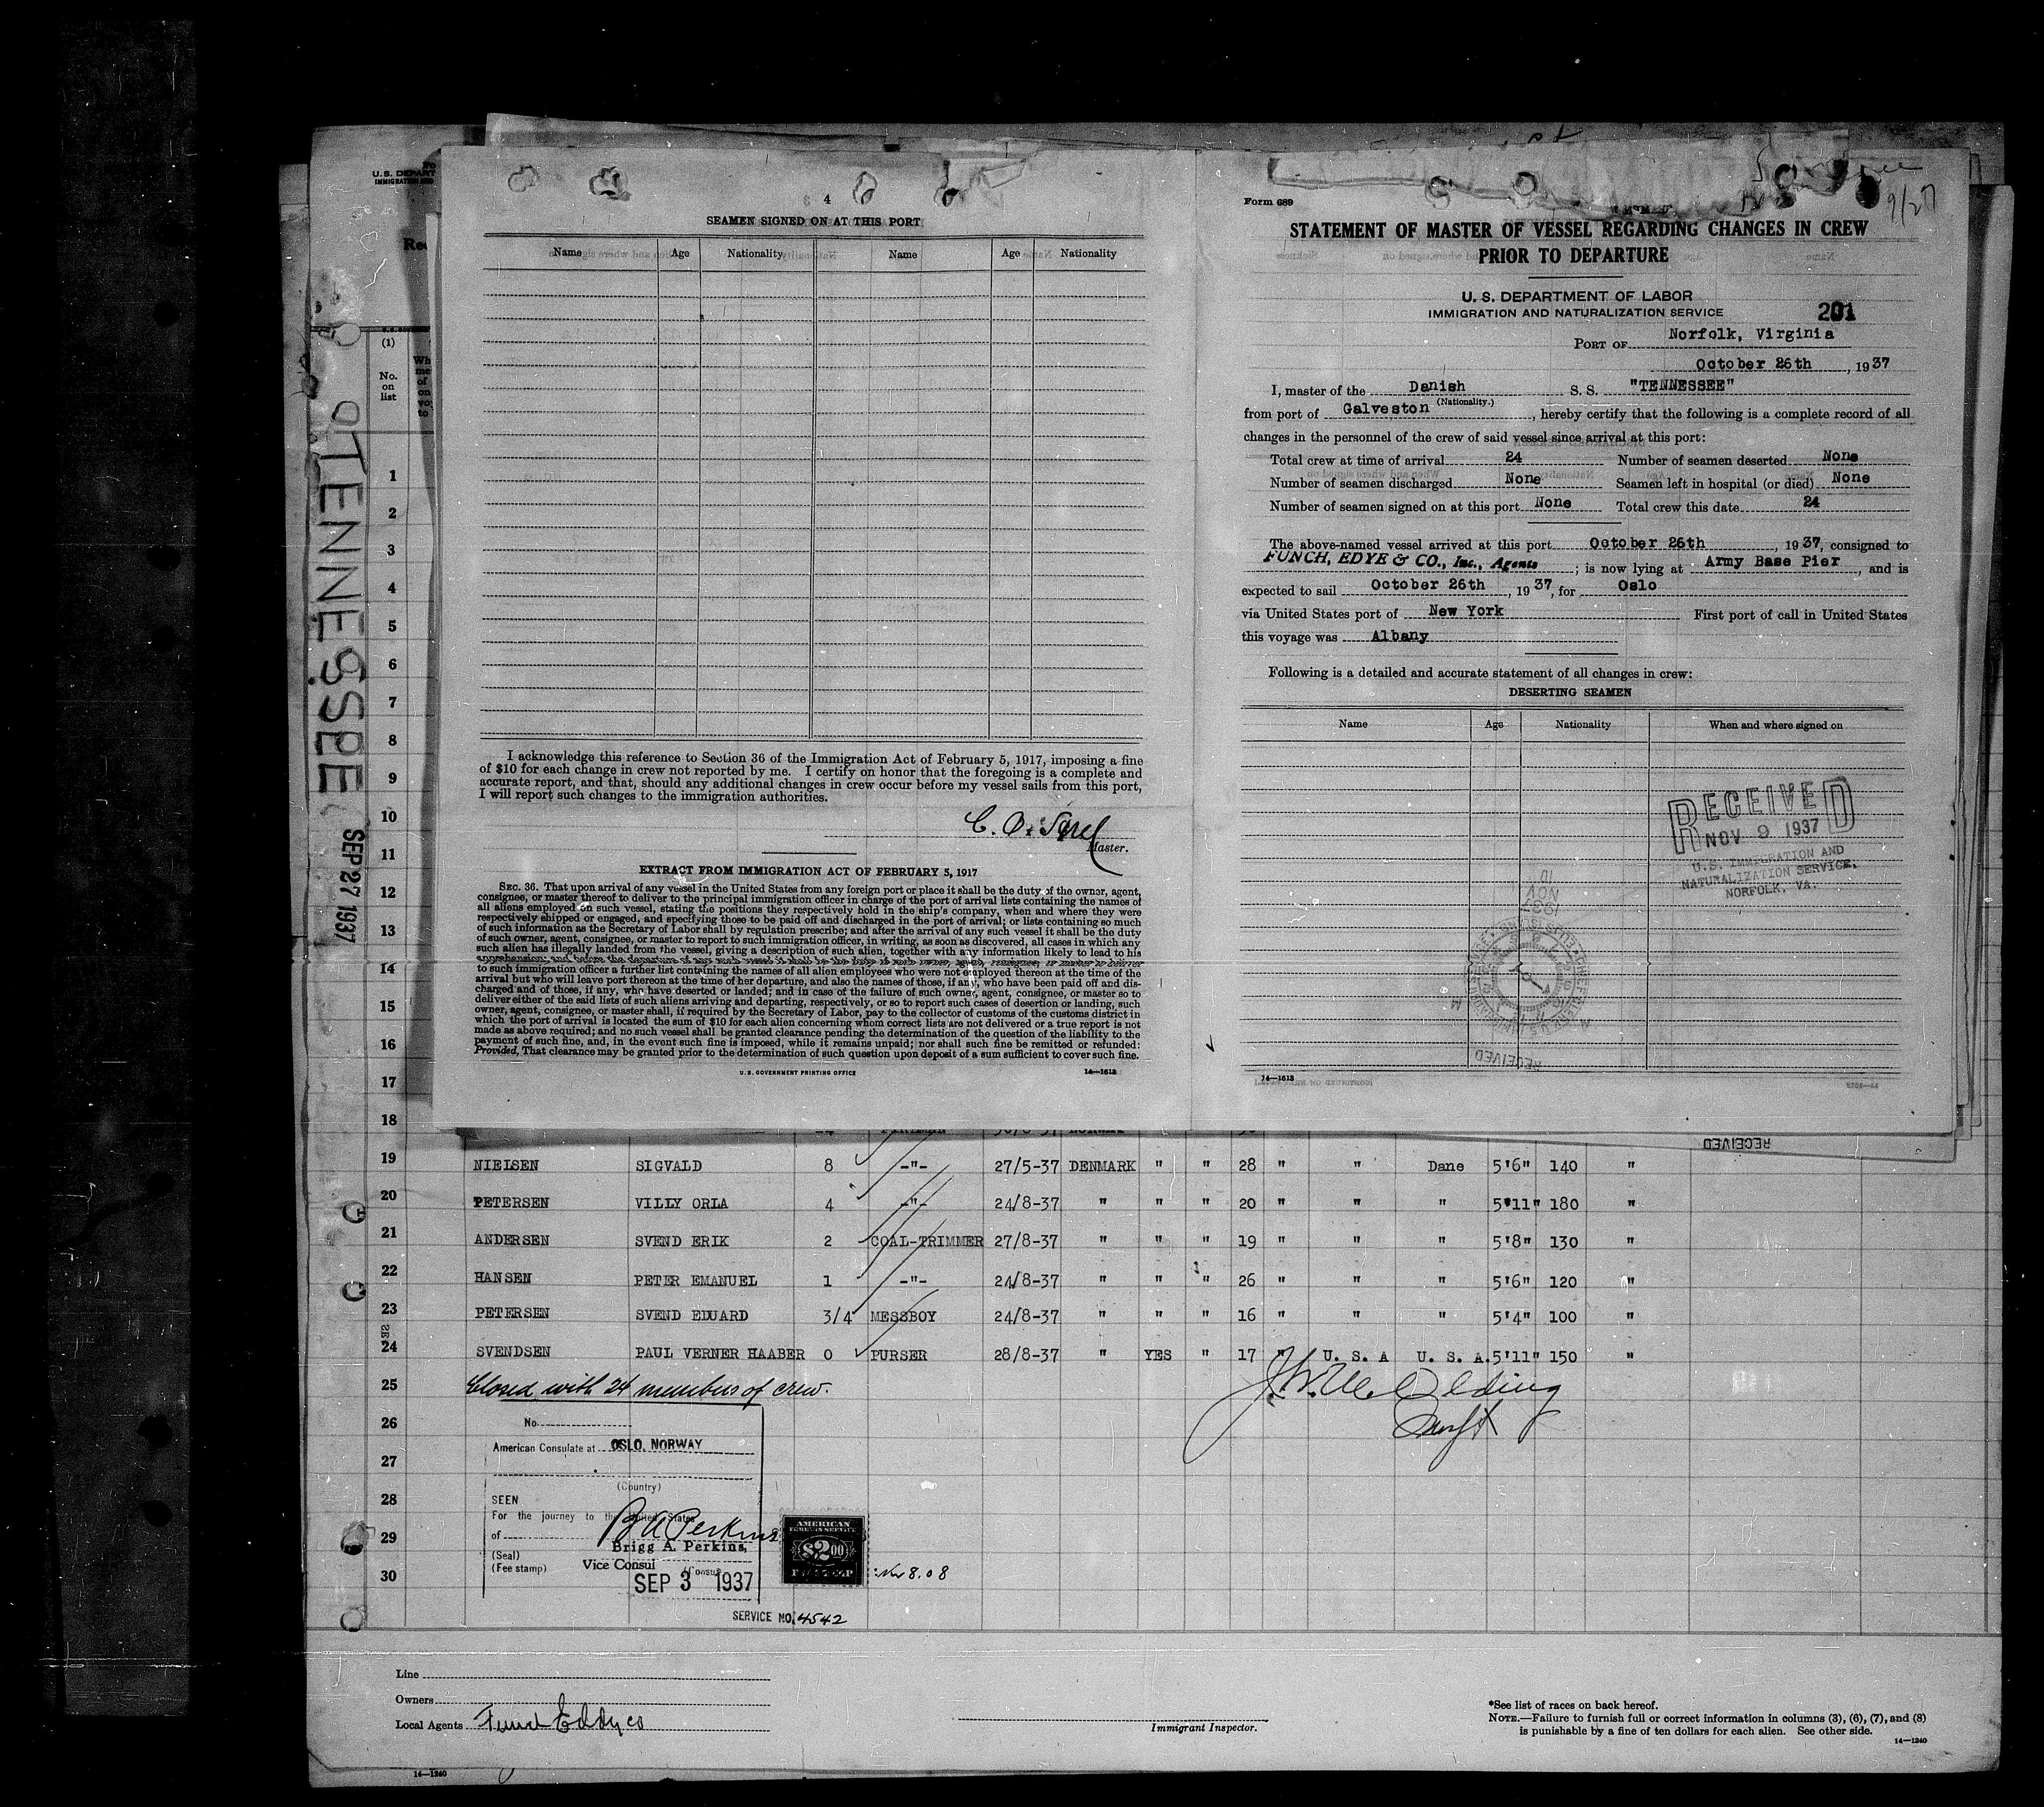 U.S. DEPART
IMMIGRATION AND
(1)
No.
on
list
TENNESSEE
SEP 27 1937
4
SEAMEN SIGNED ON AT THIS PORT
Name Age Nationality Name Age Nationality
I acknowledge this reference to Section 36 of the Immigration Act of February 5, 1917, imposing a fine
of $10 for each change in crew not reported by me. I certify on honor that the foregoing is a complete and
accurate report, and that, should any additional changes in crew occur before my vessel sails from this port,
I will report such changes to the immigration authorities.
Master.
EXTRACT FROM IMMIGRATION ACT OF FEBRUARY 5, 1917
SEC. 36. That upon arrival of any vessel in the United States from any foreign port or place it shall be the duty of the owner, agent,
consignee, or master thereof to deliver to the principal immigration officer in charge of the port of arrival lists containing the names of
all aliens employed on such vessel, stating the positions they respectively hold in the ship's company, when and where they were
respectively shipped or engaged, and specifying those to be paid off and discharged in the port of arrival; or lists containing so much
of such information as the Secretary of Labor shall by regulation prescribe; and after the arrival of any such vessel it shall be the duty
of such owner, agent, consignee, or master to report to such immigration officer, in writing, as soon as discovered, all cases in which any
such alien has illegally landed from the vessel, giving a description of such alien, together with any information likely to lead to his
apprehension; and before the departure of any such vessel it shall be the duty of such owner, agent, consignee, or master to deliver
to such immigration officer a further list containing the names of all alien employees who were not employed thereon at the time of the
arrival but who will leave port thereon at the time of her departure, and also the names of those, if any, who have been paid off and dis-
charged and of those, if any, who have deserted or landed; and in case of the failure of such owner, agent, consignee, or master so to
deliver either of the said lists of such aliens arriving and departing, respectively, or so to report such cases of desertion or landing, such
owner, agent, consignee, or master shall, if required by the Secretary of Labor, pay to the collector of customs of the customs district in
which the port of arrival is located the sum of $10 for each alien concerning whom correct lists are not delivered or a true report is not
made as above required; and no such vessel shall be granted clearance pending the determination of the question of the liability to the
payment of such fine, and, in the event such fine is imposed, while it remains unpaid; nor shall such fine be remitted or refunded:
Provided, That clearance may be granted prior to the determination of such question upon deposit of a sum sufficient to cover such fine.
U. S. GOVERNMENT PRINTING OFFICE 14—1613
9/27
Form 689
STATEMENT OF MASTER OF VESSEL REGARDING CHANGES IN CREW
PRIOR TO DEPARTURE
U. S. DEPARTMENT OF LABOR
IMMIGRATION AND NATURALIZATION SERVICE
201
PORT OF Norfolk, Virginia
October 26th, 1937
I, master of the Danish S. S. "TENNESSEE"
(Nationality.)
from port of Galveston, hereby certify that the following is a complete record of all
changes in the personnel of the crew of said vessel since arrival at this port:
Total crew at time of arrival 24 Number of seamen deserted None
Number of seamen discharged None Seamen left in hospital (or died) None
Number of seamen signed on at this port None Total crew this date 24
The above-named vessel arrived at this port October 26th, 1937, consigned to
FUNCH, EDYE & CO., Inc., Agents; is now lying at Army Base Pier, and is
expected to sail October 26th, 1937, for Oslo
via United States port of New York First port of call in United States
this voyage was Albany
Following is a detailed and accurate statement of all changes in crew:
DESERTING SEAMEN
Name Age Nationality When and where signed on
RECEIVED
NOV 9 1937
U.S. IMMIGRATION AND
NATURALIZATION SERVICE,
NORFOLK, VA.
14—1613
1
2
3
4
5
6
7
8
9
10
11
12
13
14
15
16
17
18
19 NIELSEN SIGVALD 8 -"- 27/5-37 DENMARK " " 28 " " Dane 5'6" 140 "
20 PETERSEN VILLY ORLA 4 -"- 24/8-37 " " " 20 " " " 5'11" 180 "
21 ANDERSEN SVEND ERIK 2 COAL-TRIMMER 27/8-37 " " " 19 " " " 5'8" 130 "
22 HANSEN PETER EMANUEL 1 -"- 24/8-37 " " " 26 " " " 5'6" 120 "
23 PETERSEN SVEND EDUARD 3/4 MESSBOY 24/8-37 " " " 16 " " " 5'4" 100 "
24 SVENDSEN PAUL VERNER HAABER 0 PURSER 28/8-37 " YES " 17 " U. S. A U. S. A. 5'11" 150 "
25 Closed with 24 members of crew.
26 No.
American Consulate at OSLO, NORWAY
27
(Country)
28 SEEN
For the journey to the United States
29 of B A Perkins
Brigg A. Perkins,
(Seal)
Vice Consul (Consul
(Fee stamp)
30 SEP 3 1937
AMERICAN
FOREIGN SERVICE
$2.00
SERVICE NO. 4542
Line
Owners
Local Agents
Immigrant Inspector.
*See list of races on back hereof.
NOTE.—Failure to furnish full or correct information in columns (3), (6), (7), and (8)
is punishable by a fine of ten dollars for each alien. See other side.
14—1240
14—1240